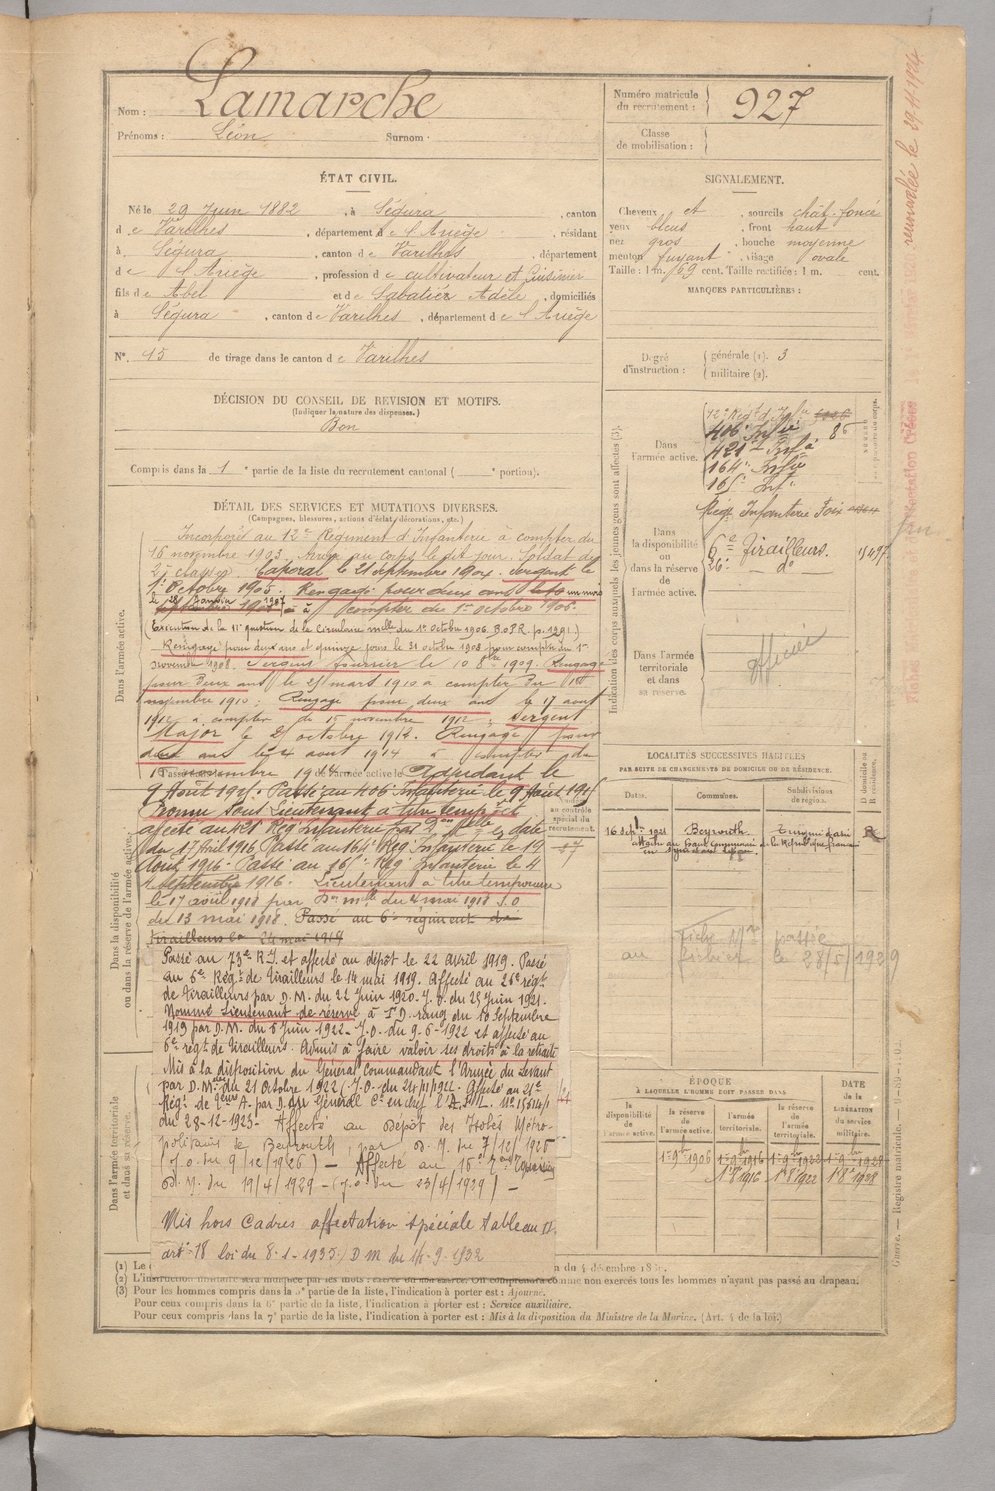 Nom : Lamarche
Prénoms : Léon Surnom :
Numéro matricule du recrutement : 927
Classe de mobilisation :
ÉTAT CIVIL.
Né le 29 Juin 1882, à Ségura, canton
d e Varilhes, département d e l'Ariège, résidant
à Ségura, canton d e Varilhes, département
d e l'Ariège, profession d e cultivateur et Cuisinier
fils d e Abel et d e Sabatier Adèle, domiciliés
à Ségura, canton d e Varilhes, département d e l'Ariège
N°. 15 de tirage dans le canton d e Varilhes
SIGNALEMENT.
Cheveux et, sourcils chât. foncé
yeux bleus, front haut
nez gros, bouche moyenne
menton fuyant, visage ovale
Taille : 1 m. 69 cent. Taille rectifiée : 1 m. cent.
MARQUES PARTICULIÈRES :
Degré d'instruction : générale (1). 3
militaire (2).
DÉCISION DU CONSEIL DE REVISION ET MOTIFS.
(Indiquer la nature des dispenses.)
Bon
Compris dans la 1e partie de la liste du recrutement cantonal ( e portion).
DÉTAIL DES SERVICES ET MUTATIONS DIVERSES.
(Campagnes, blessures, actions d'éclat, décorations, etc.)
Dans l'armée active.
Incorporé au 12e Régiment d'Infanterie à compter du
16 novembre 1903. Arrivé au corps le dit jour. Soldat de
2e classe. Caporal le 21 septembre 1904. Sergent le
1er Octobre 1905. Rengagé pour deux ans
à compter du 1er octobre 1906.
(Exécution de la 11e question de la Circulaire mlle du 1er Octobre 1906. B.O.P.R. p. 1291.)
Rengagé pour deux ans et quinze jours le 31 octobre 1908 pour compter du 1er
novembre 1908. Sergent fourrier le 10 8bre 1909. Rengagé
pour deux ans le 25 mars 1910 à compter du
novembre 1910 ; Rengagé pour deux ans le 17 août
1912 à compter du 15 novembre 1912 ; Sergent
Major le 25 octobre 1912. Rengagé pour
deux ans le 4 août 1914 à compter du
novembre 1914 Adjudant le
9 Août 1915. Passé au 406 Infanterie le 9 Août 1915
Promu Sous Lieutenant à titre temp. et
affecté au 421 Rég Infanterie par D. Melle en date
du 17 Avril 1916 Passé au 164e Rég Infanterie le 19
Août 1916. Passé au 165e Rég Infanterie le 4
Septembre 1916. Lieutenant à titre temporaire
le 17 août 1918 par Don mlle du 4 mai 1918 J.O
du 13 mai 1918. Passé au 6e régiment de
tirailleurs le 24 mai 1919
Dans la disponibilité ou dans la réserve de l'armée active.
Passé au 73e R.I. et affecté au dépôt le 22 avril 1919. Passé
au 6e Régt de Tirailleurs le 14 mai 1919. Affecté au 26e régt
de Tirailleurs par D.M. du 22 Juin 1920. J.O. du 25 Juin 1921.
Nommé Lieutenant de réserve à T.D. rang du 18 Septembre
1919 par D.M. du 6 Juin 1922. J.O. du 9-6-1922 et affecté au
6e régt de Tirailleurs. Admis à faire valoir ses droits à la retraite
Mis à la disposition du Général Commandant l'Armée du Levant
par D.M. du 21 Octobre 1922 (J.O. du 24/11/1922. Affecté au 21e
du 28-12-1923- Affecté au Dépôt des Isolés Métro-
politains de Beyrouth, par D.M. du 7/12/1925
(J.O. du 9/12/1926) - Affecté au 16e
D.M. du 19/4/1929 - (J.O. du 23/4/1929) -
Mis hors Cadres affectation Spéciale tableau
art. 18 loi du 8-1-1925) DM du 14-9-1932
Dans l'armée territoriale et dans sa réserve.
Indication des corps auxquels les jeunes gens sont affectés (3).
Dans l'armée active.
12e Régt d'Infie
406 Infie
421e Infie
164e Infie
165e Infie
Dans la disponibilité ou dans la réserve de l'armée active.
Régt Infanterie Foix
6e Tirailleurs.
26e do
Dans l'armée territoriale et dans sa réserve.
officier
LOCALITÉS SUCCESSIVES HABITÉES
PAR SUITE DE CHANGEMENTS DE DOMICILE OU DE RÉSIDENCE.
Dates. Communes. Subdivisions de région. D domicile ou R résidence.
16 Sept. 1921 Beyrouth R
attaché au haut commissariat de la République française
en Syrie et au Liban
Fiche passée
au fichier le 28/5/1929
ÉPOQUE
À LAQUELLE L'HOMME DOIT PASSER DANS
la disponibilité de l'armée active. la réserve de l'armée active. l'armée territoriale. la réserve de l'armée territoriale.
DATE de la LIBÉRATION du service militaire.
1er 9bre 1906 1er 9bre 1916 1er 9bre 1922 1er 9bre 1928
1er 8e 1916 1er 8e 1922 1er 8e 1928
(2) L'instruction militaire sera indiquée par les mots : exercé ou non exercé. On comprendra comme non exercés tous les hommes n'ayant pas passé au drapeau.
(3) Pour les hommes compris dans la 5e partie de la liste, l'indication à porter est : Ajourné.
Pour ceux compris dans la 6e partie de la liste, l'indication à porter est : Service auxiliaire.
Pour ceux compris dans la 7e partie de la liste, l'indication à porter est : Mis à la disposition du Ministre de la Marine. (Art. 4 de la loi.)